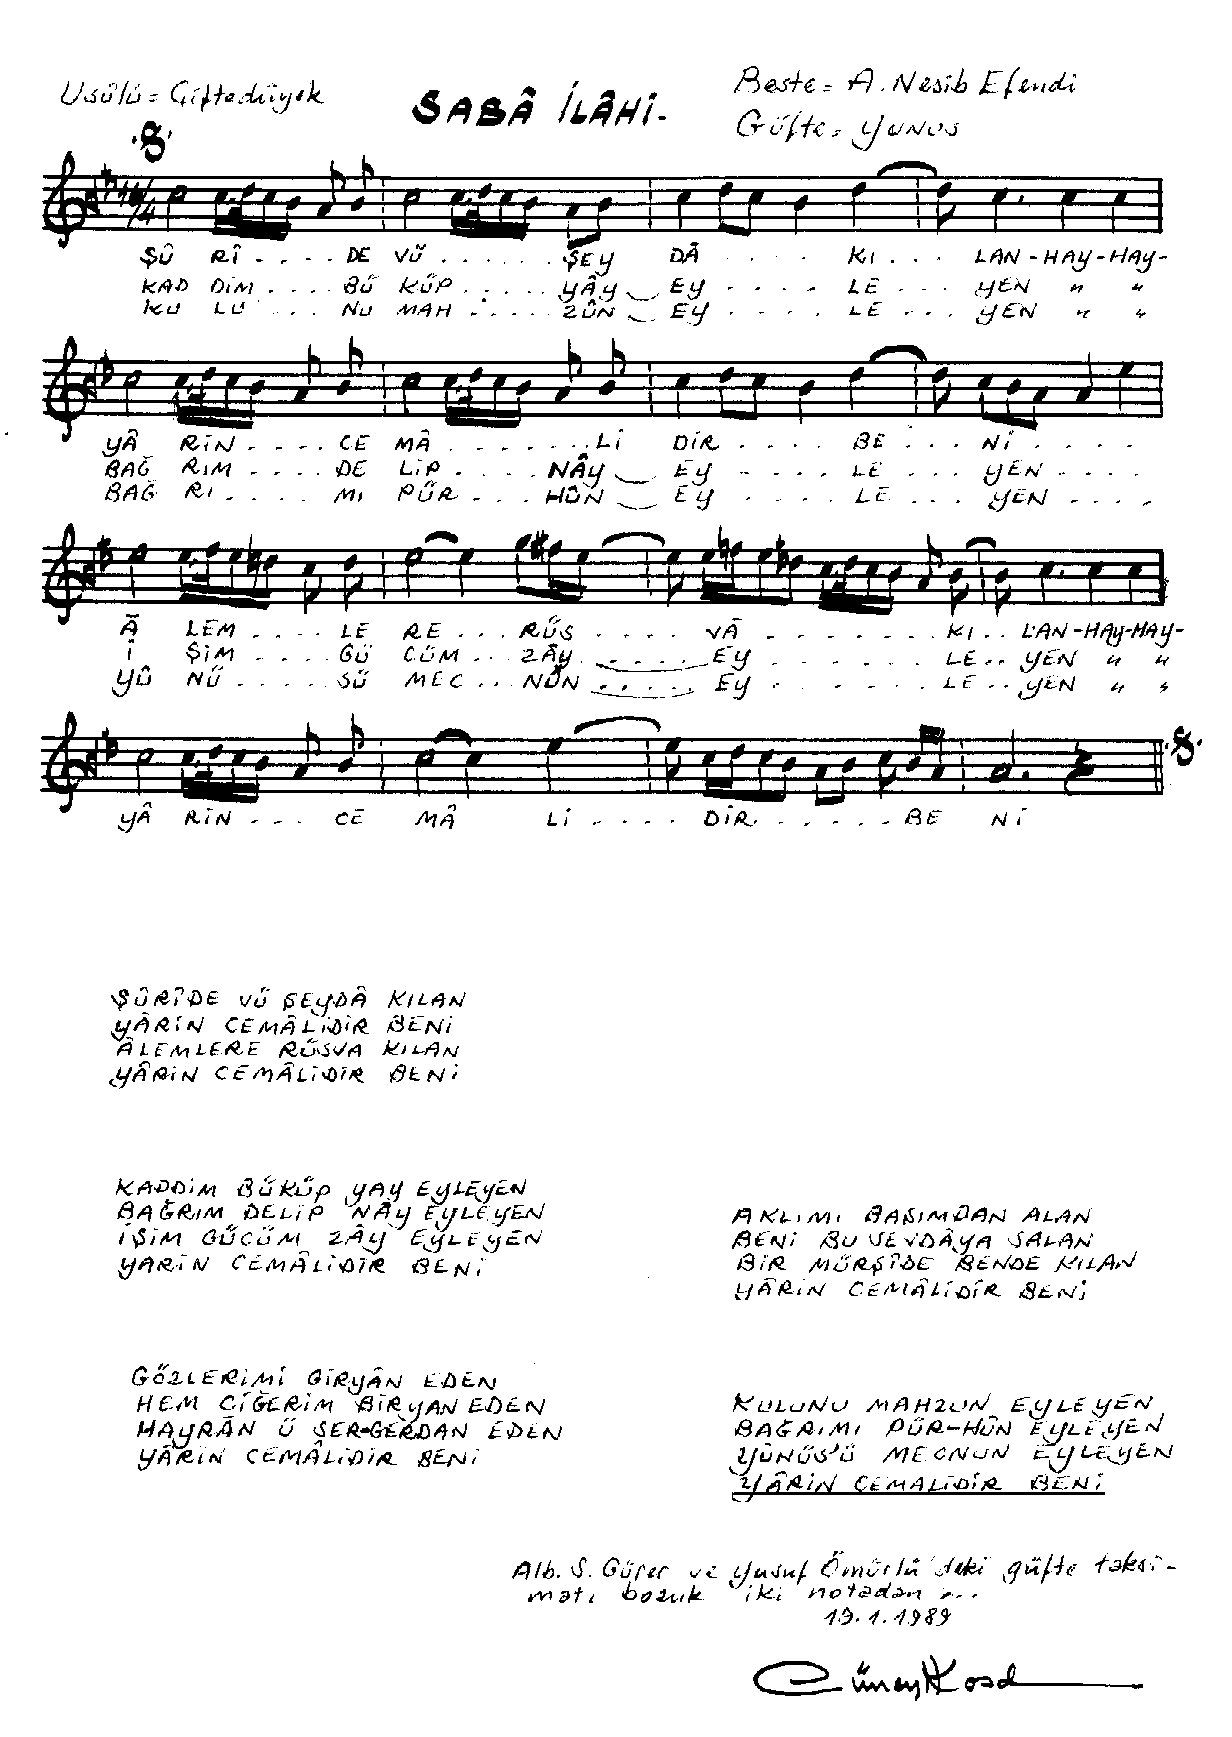 Usûlü = Çiftedüyek
SABÂ İLÂHİ.
Beste = A. Nesib Efendi
Güfte = YUNUS
ŞÛ RÎ . . . . DE VÜ . . . . . ŞEY DÂ . . . . KI . . . LAN-HAY-HAY-
KAD DİM . . . . BÜ KÜP . . . . . YÂY EY . . . . LE . . . YEN " "
KU LU . . . NU MAH . . . . . ZÛN EY . . . . LE . . . YEN " "
YÂ RİN . . . . CE MÂ . . . . . . Lİ DİR . . . . BE . . . Nİ . . . .
BAĞ RIM . . . . DE LİP . . . . NÂY EY . . . . LE . . . YEN . . . .
BAĞ RI . . . . MI PÜR . . . HÛN EY . . . . LE . . . YEN . . . .
Â LEM . . . . LE RE . . . RÜS . . . . VÂ . . . . . . . KI . . LAN-HAY-HAY-
İ ŞİM . . . . GÜ CÜM . . ZÂY . . . . . EY . . . . . . LE . . YEN " "
YÛ NÜ . . . . . SÜ MEC . . NÛN . . . . . EY . . . . . . LE . . YEN " "
YÂ RİN . . . CE MÂ Lİ . . . . DİR . . . . . . BE Nİ
ŞÛRÎDE VÜ ŞEYDÂ KILAN
YÂRİN CEMÂLİDİR BENİ
ÂLEMLERE RÜSVA KILAN
YÂRİN CEMÂLİDİR BENİ
KADDİM BÜKÜP YAY EYLEYEN
BAĞRIM DELİP NÂY EYLEYEN
İŞİM GÜCÜM ZÂY EYLEYEN
YARİN CEMÂLİDİR BENİ
AKLIMI BAŞIMDAN ALAN
BENİ BU SEVDÂYA SALAN
BİR MÜRŞÎDE BENDE KILAN
YÂRİN CEMÂLİDİR BENİ
GÖZLERİMİ GİRYÂN EDEN
HEM CİĞERİM BİRYAN EDEN
HAYRÂN Ü SER-GERDAN EDEN
YÂRİN CEMÂLİDİR BENİ
KULUNU MAHZUN EYLEYEN
BAĞRIMI PÜR-HÛN EYLEYEN
YÛNÜS'Ü MECNUN EYLEYEN
YÂRİN CEMALİDİR BENİ
Alb. S. Gürer ve Yusuf Ömürlü'deki güfte taksi-
matı bozuk iki notadan ...
19.1.1989